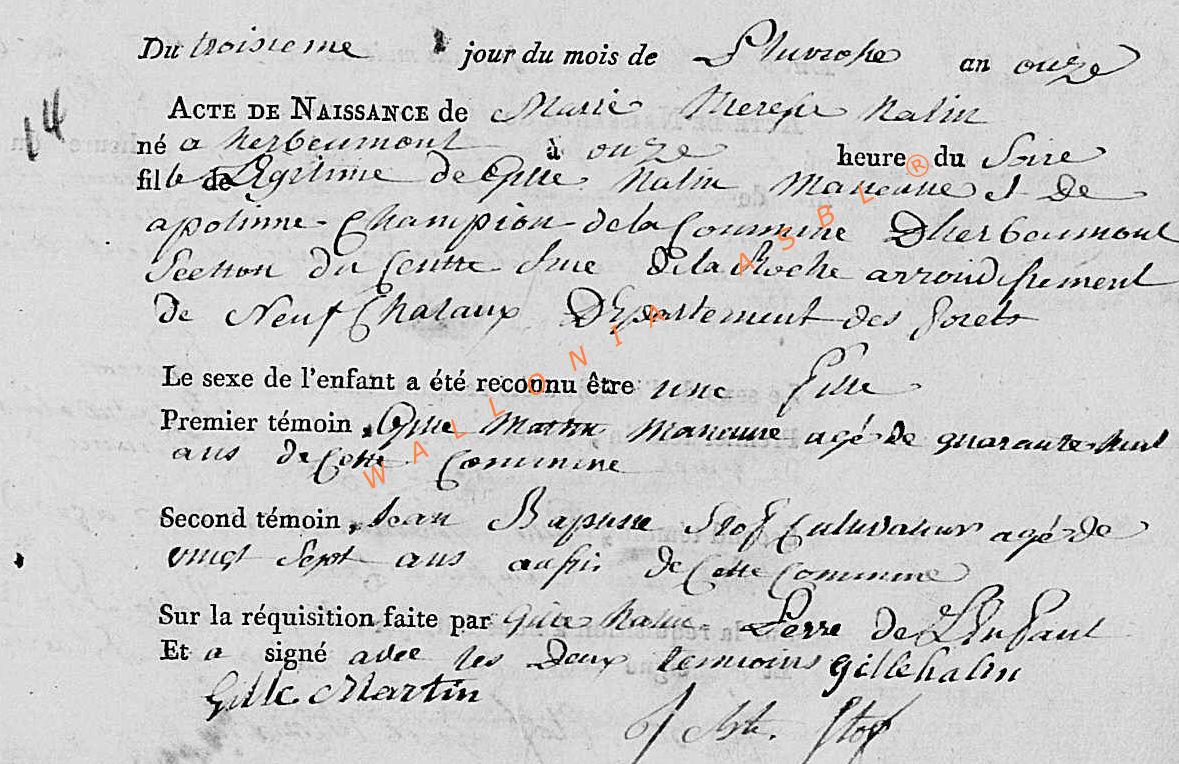 Du troisieme jour du mois de Pluviose an onze
14
ACTE DE NAISSANCE de Marie Therese halin
né a herbeumont à onze heure du Soire
fille Legitime de Gille halin Maneuve et de
apolinne Champion de la Commune D'herbeumont
Section du Centre de la Roche arrondissement
de Neuf Chataux Departement des forets
Le sexe de l'enfant a été reconnu être une fille
Premier témoin, Gille Martin Maneuve agé de quarante huit
ans de Cette Commune
Second témoin, Jean Baptiste Stof Cultivateur agé de
vingt Sept ans aussi de Cette Commune
Sur la réquisition faite par Gille halin Perre de L'Enfant
Et a signé avec les Deux temoins gille halin
Gille Martin
Stof
WALLONIA ASBL ®